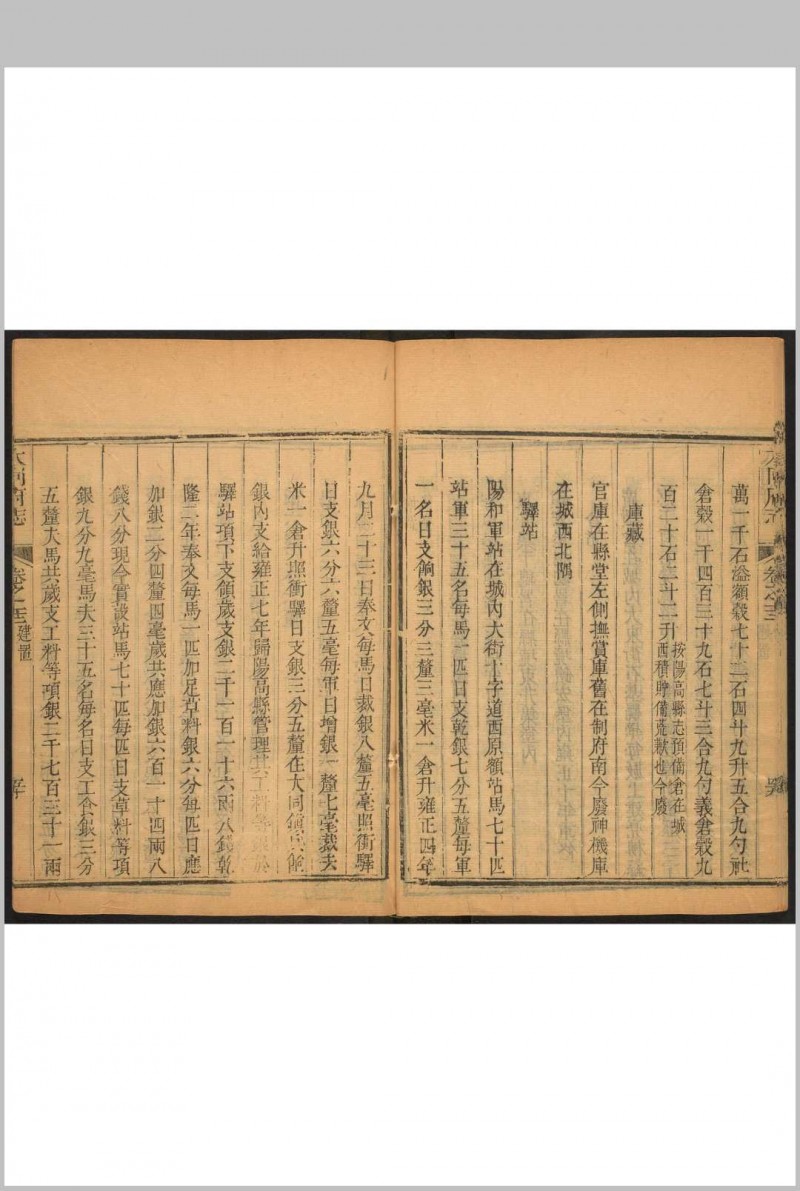 萬一千石溢額穀七十二石四斗九升五合九勺社
倉穀一千四百三十九石七斗三合九勺義倉穀九
百二十石二斗二升按陽高縣志預備倉在城
西積貯備荒歉也今廢
庫藏
官庫在縣堂左側撫賞庫舊在制府南今廢神機庫
在城西北隅
驛站
陽和軍站在城內大街十字道西原額站馬七十匹
站軍三十五名每馬一匹日支乾銀七分五釐每軍
一名日支餉銀三分三釐三毫米一倉升雍正四年
九月二十三日奉文每馬日裁銀八釐五毫照衝驛
日支銀六分六釐五毫每軍日增銀一釐七毫裁夫
米一倉升照衝驛日支銀三分五釐在大同
銀內支給雍正七年歸陽高縣管理其工料
驛站項下支領歲支銀二千一百一十六兩八錢乾
隆二年奉文每馬一匹加足草料銀六分每匹日應
加銀二分四釐四毫歲共應加銀六百一十四兩八
錢八分現今實設站馬七十匹每匹日支草料等項
銀九分九毫馬夫三十五名每名日支工食銀三分
五釐夫馬共歲支工料等項銀二千七百三十一兩
大同府志
卷之十二
建置